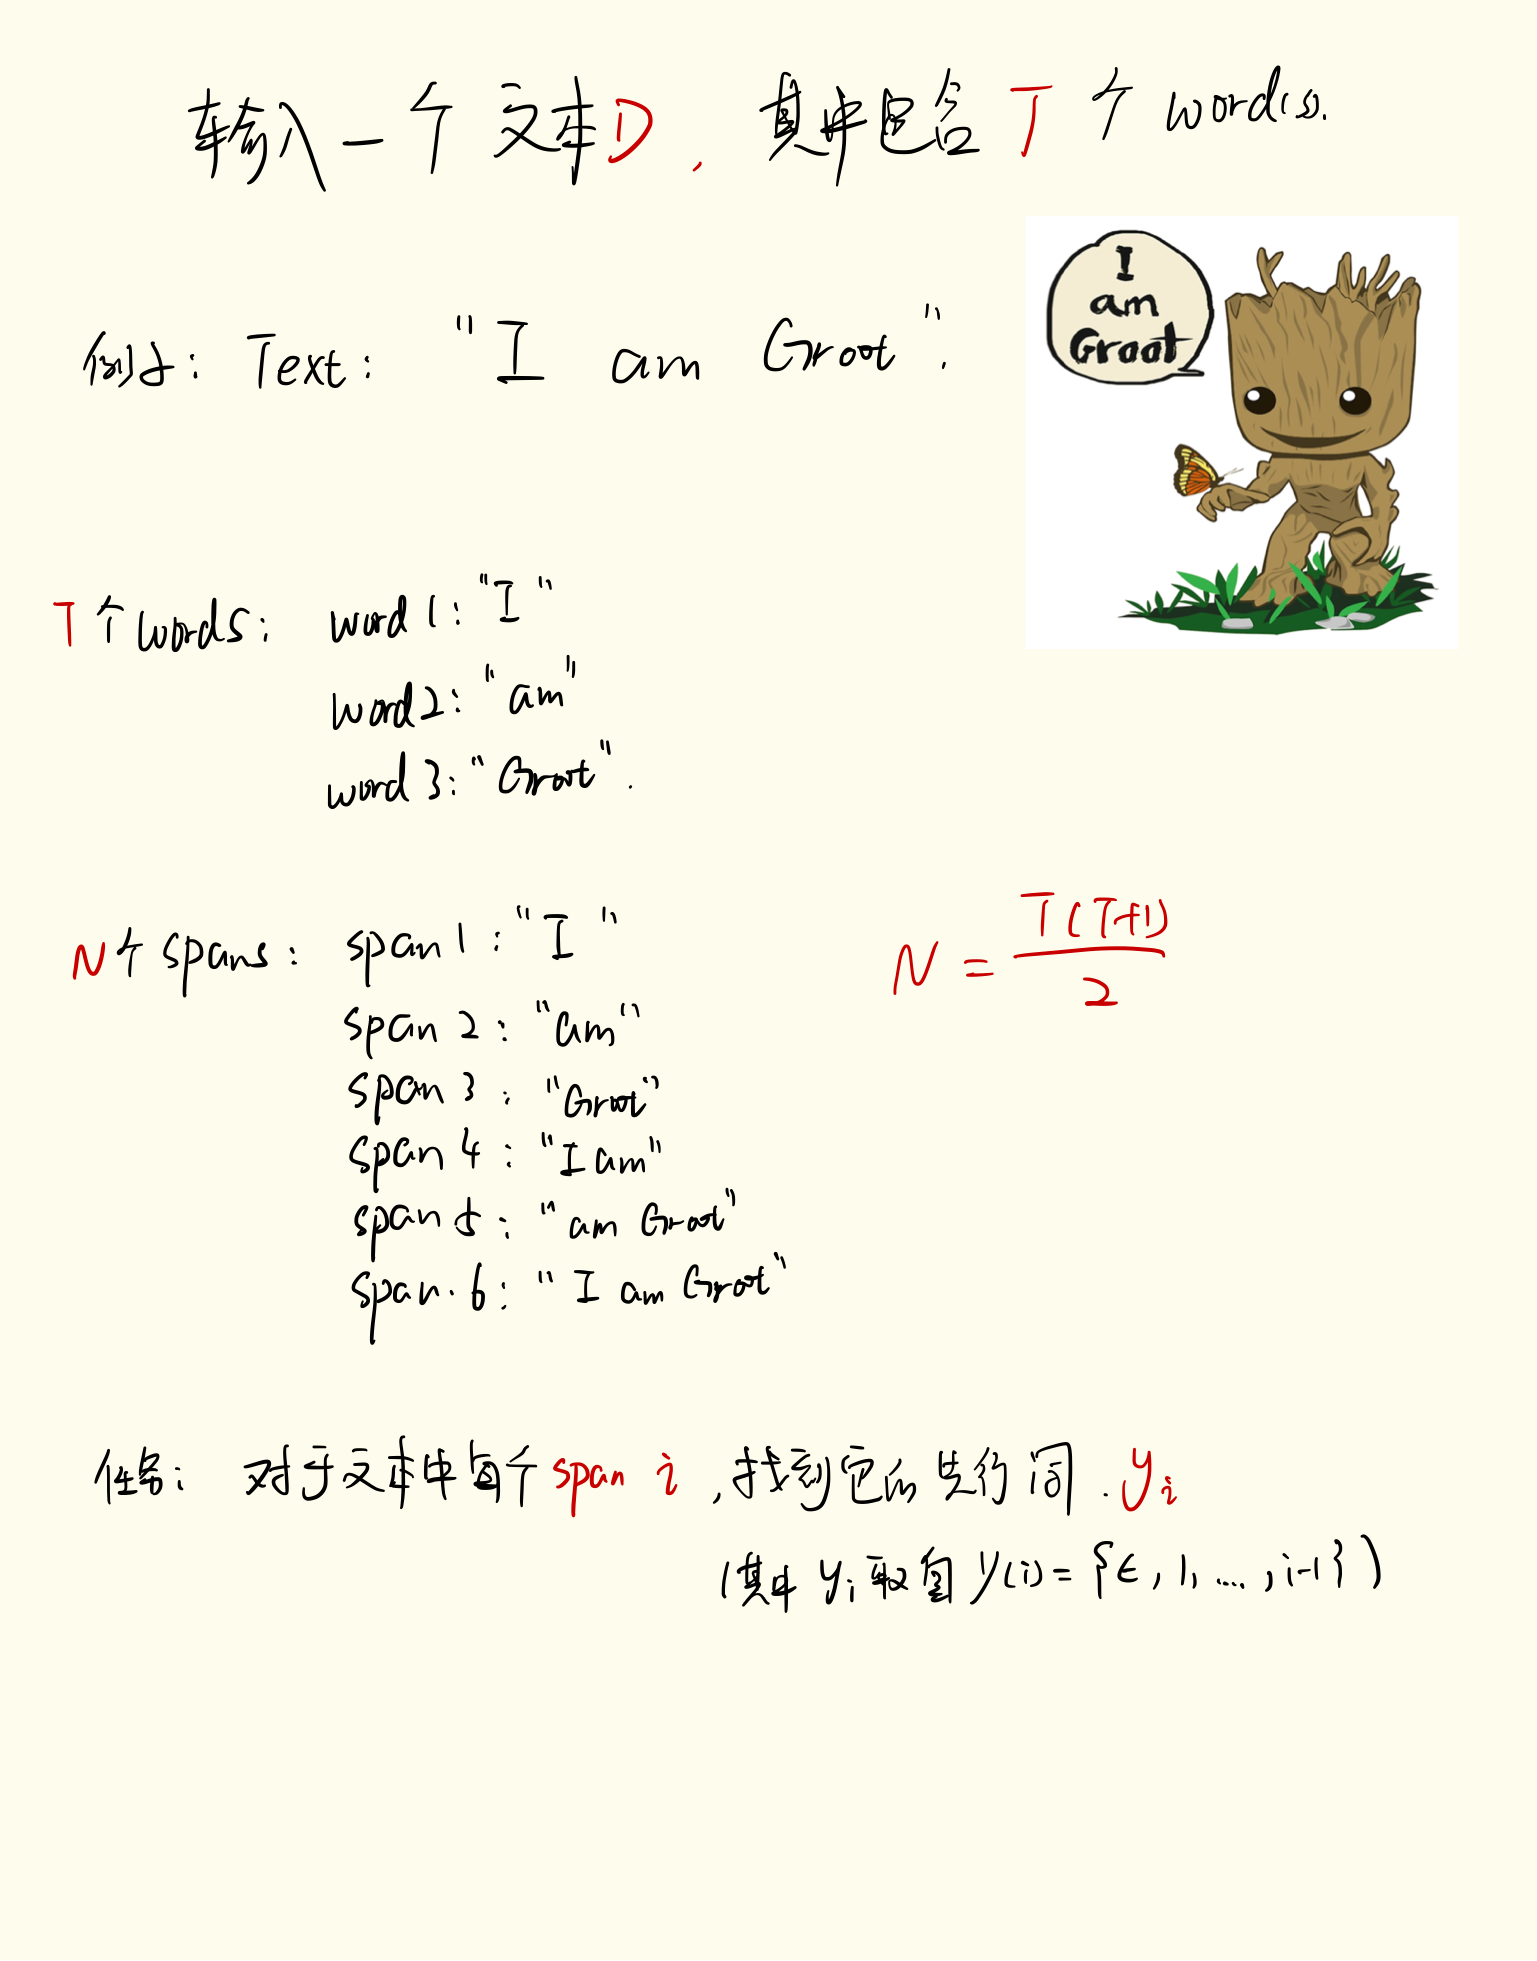 输入一个文本D, 其中包含T个word(s).
I
am
Groot
例子: Text: "I am Groot".
T个words: word 1: "I"
word 2: "am"
word 3: "Groot".
N个spans: span 1: "I"
N = T(T+1)/2
span 2: "am"
span 3: "Groot"
span 4: "I am"
span 5: "am Groot"
span 6: "I am Groot"
任务: 对于文本中每个span i, 找到它的先行词. yᵢ
(其中 yᵢ 取自 Y(i) = {ϵ, 1, ..., i-1})